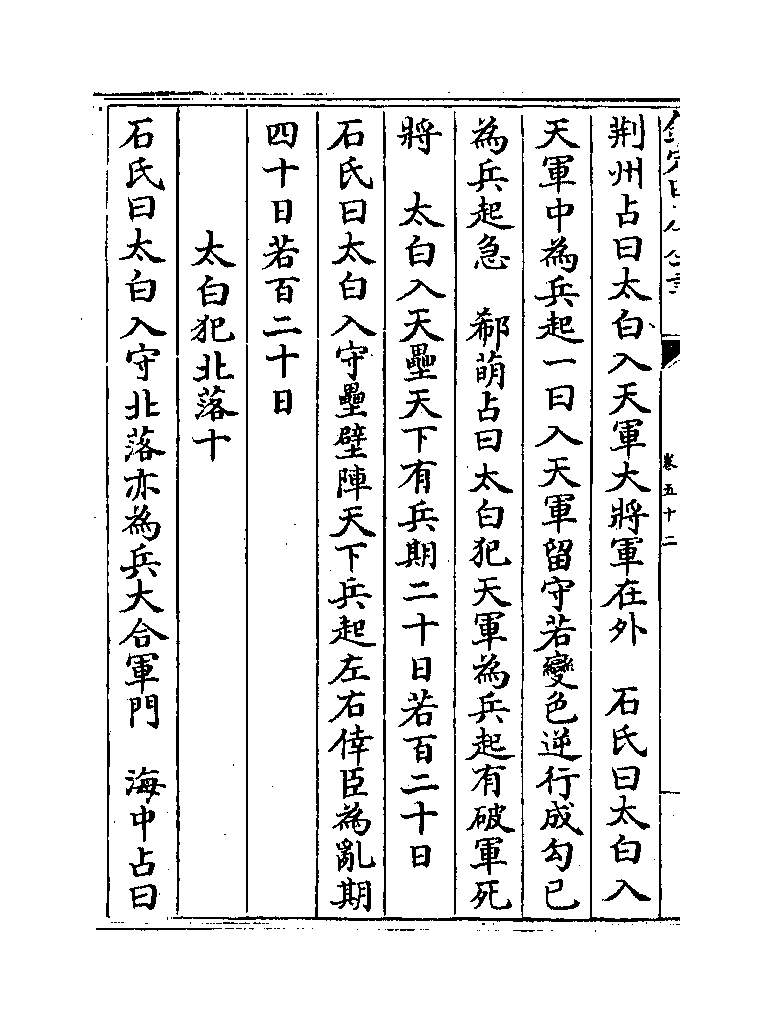 荆州占曰太白入天軍大將軍在外　石氏曰太白入
天軍中為兵起一曰入天軍留守若變色逆行成勾已
為兵起急　郗萌占曰太白犯天軍為兵起有破軍死
將　太白入天壘天下有兵期二十日若百二十日
石氏曰太白入守壘壁陣天下兵起左右倖臣為亂期
四十日若百二十日
太白犯北落十
石氏曰太白入守北落亦為兵大合軍門　海中占曰
卷五十二